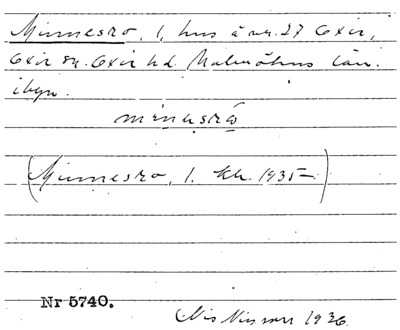 Minnesro, 1, hus å nr. 27 Oxie,
Oxie sn. Oxie hd. Malmöhus län.
i byn.
minəsrō
(Minnesro, 1. Kb. 1935–)
Nr 5740.
Nils Nilsson 1936